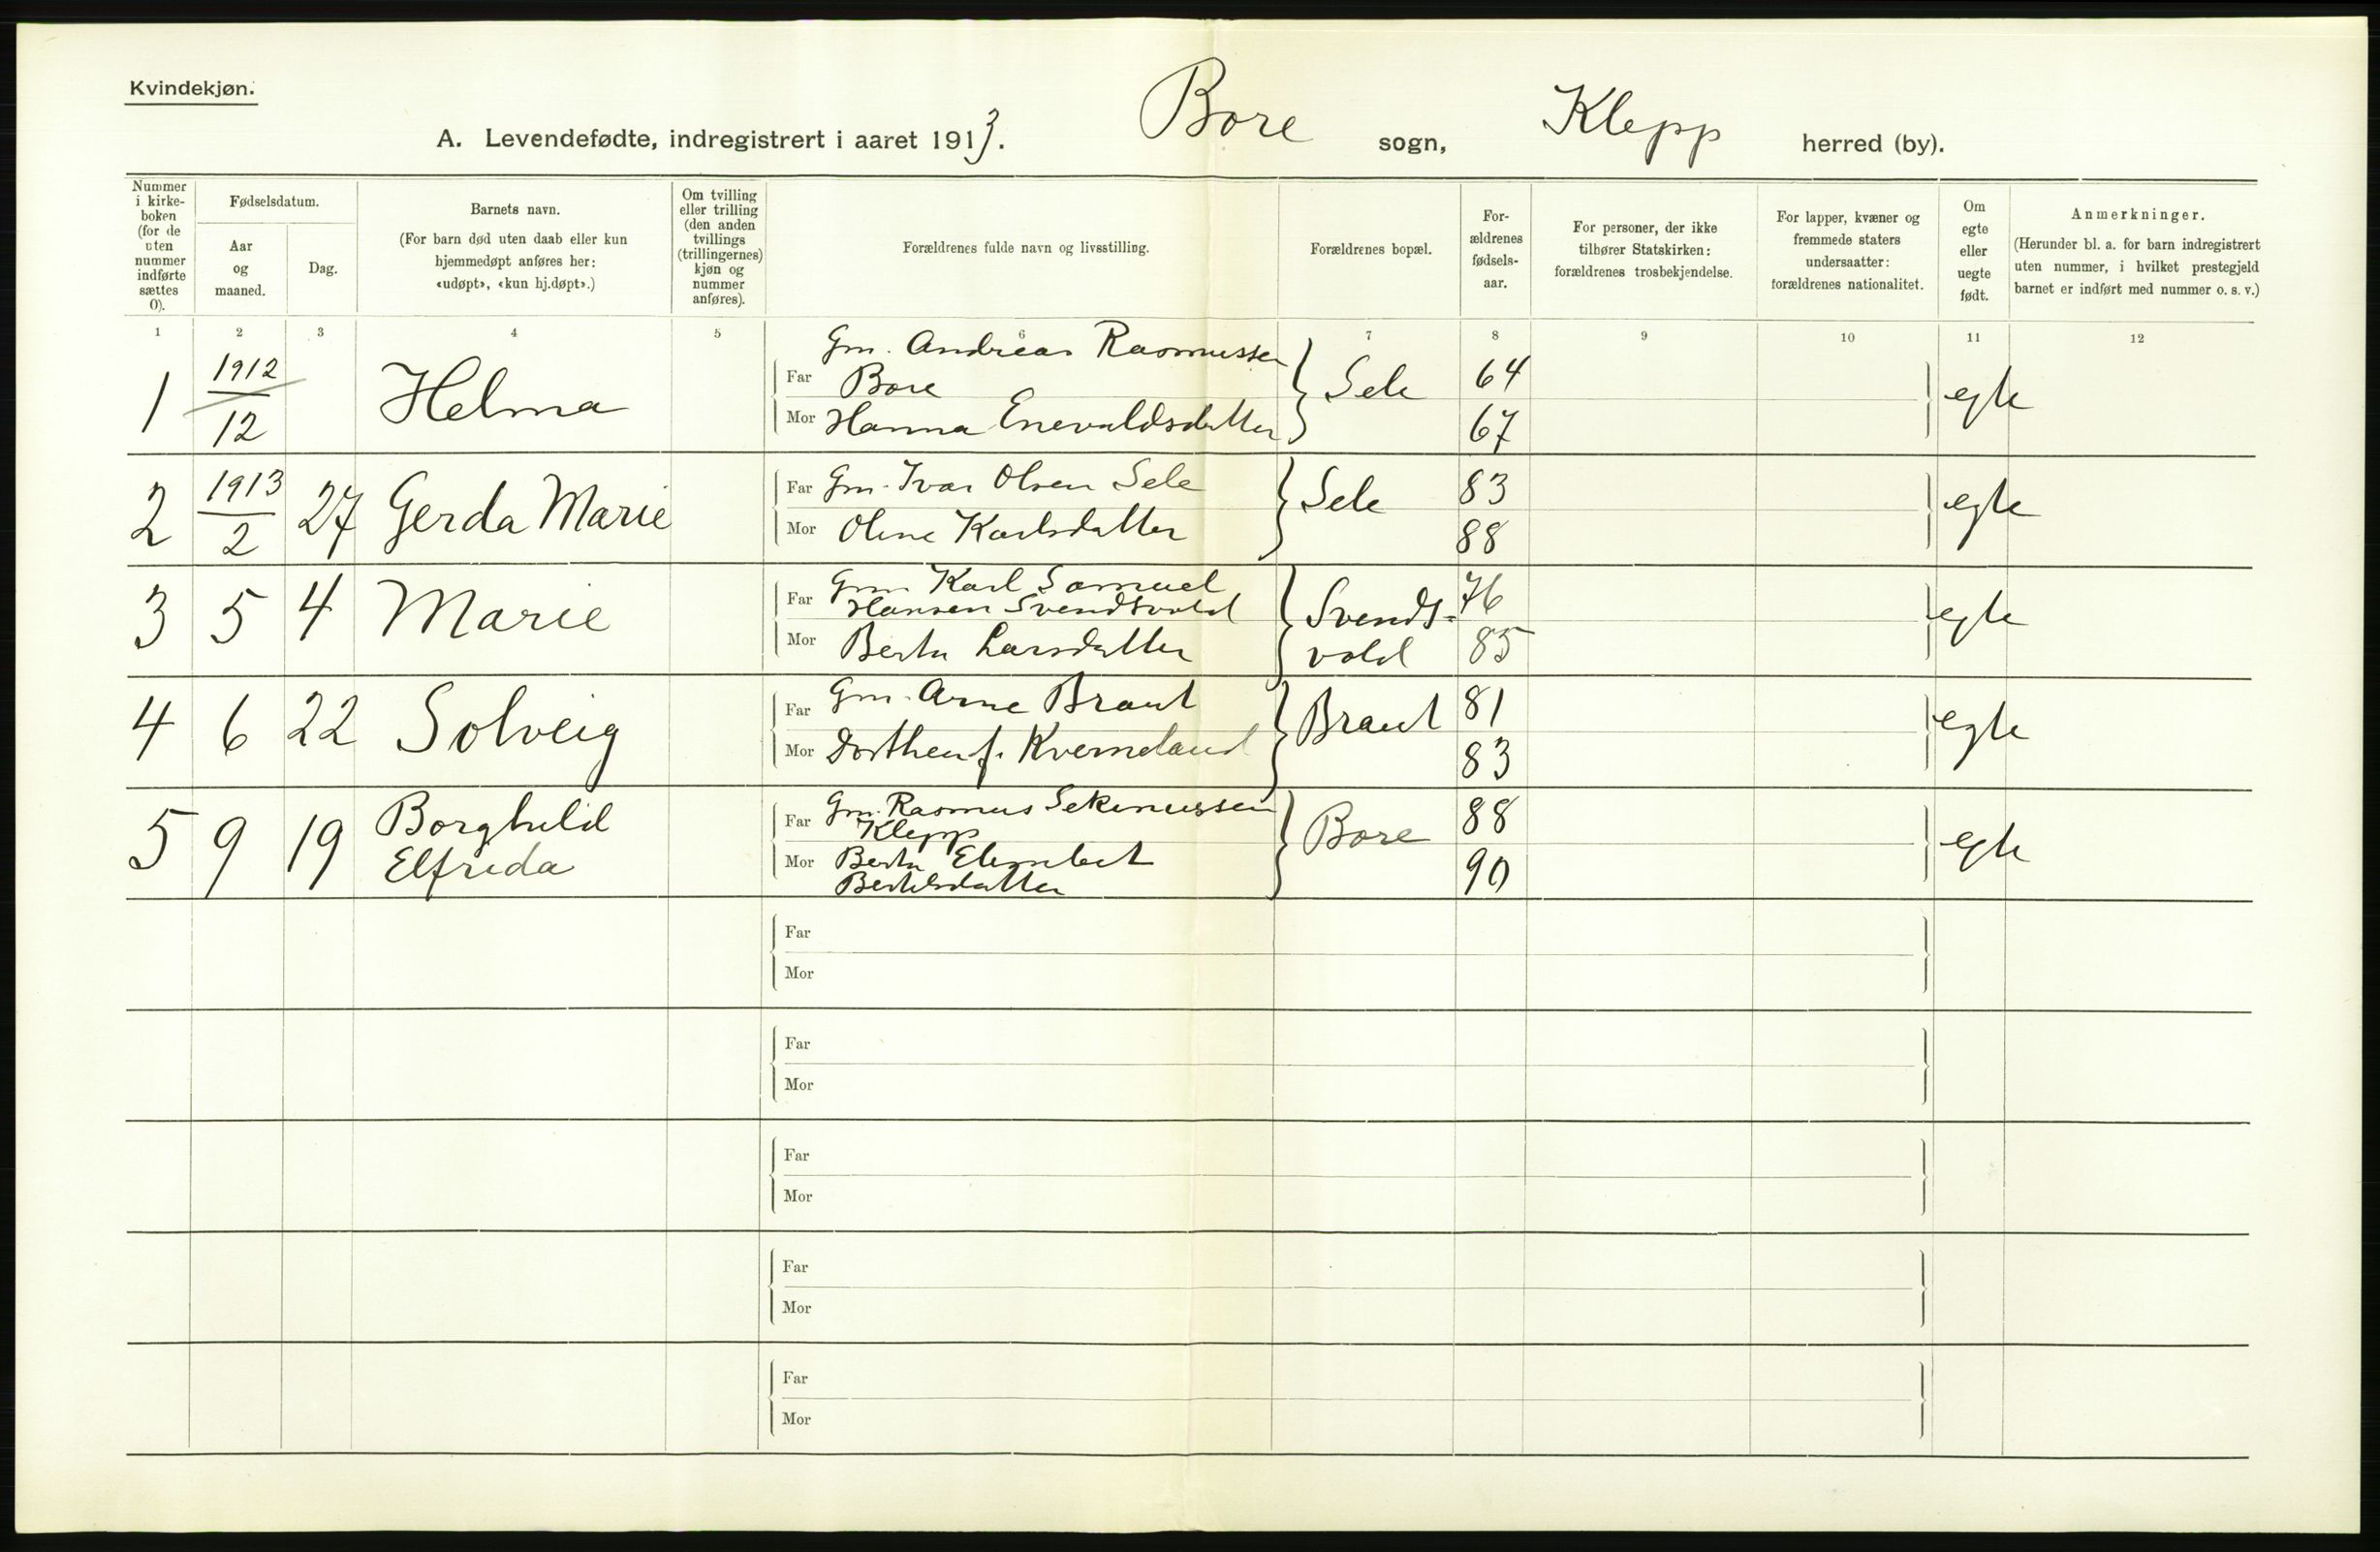 Kvindekjøn.
A. Levendefødte, indregistrert i aaret 1913. Bore sogn, Klepp herred (by).
Nummer
i kirke-
boken
(for de
uten
nummer
indførte
sættes
0).
Fødselsdatum.
Aar
og
maaned.
Dag.
Barnets navn.
(For barn død uten daab eller kun
hjemmedøpt anføres her:
«udøpt», «kun hj.døpt».)
Om tvilling
eller trilling
(den anden
tvillings
(trillingernes)
kjøn og
nummer
anføres).
Forældrenes fulde navn og livsstilling.
Forældrenes bopæl.
For-
ældrenes
fødsels-
aar.
For personer, der ikke
tilhører Statskirken:
forældrenes trosbekjendelse.
For lapper, kvæner og
fremmede staters
undersaatter:
forældrenes nationalitet.
Om
egte
eller
uegte
født.
Anmerkninger.
(Herunder bl. a. for barn indregistrert
uten nummer, i hvilket prestegjeld
barnet er indført med nummer o. s. v.)
1 2 3 4 5 6 7 8 9 10 11 12
1 1912/12 Helma
Gm. Andreas Rasmussen
Far Bore
Mor Hanna Enevaldsdatter
Sele 64
67
egte
2 1913/2 27 Gerda Marie
Far Gm. Ivar Olsen Sele
Mor Oline Karlsdatter
Sele 83
88
egte
3 5 4 Marie
Far Gm Karl Samuel
Hansen Svendsvold
Mor Berta Larsdatter
Svends-
vold
76
85
egte
4 6 22 Solveig
Far Gm. Arne Braut
Mor Dorthea f. Kverneland
Braut 81
83
egte
5 9 19 Borghild
Elfrida
Far Gm. Rasmus
Klepp
Mor Berta Elisabet
Bertelsdatter
Bore 88
90
egte
Far
Mor
Far
Mor
Far
Mor
Far
Mor
Far
Mor